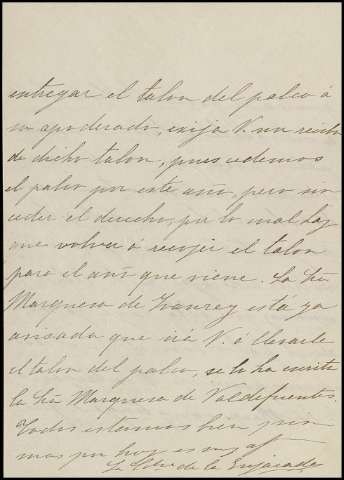 entregar el talon del palco á
su apoderado, exija V. un recibo
de dicho talon, pues cedemos
el palco por este año, pero sin
ceder el derecho, por lo cual hay
que volver á recojer el talon
para el año que viene. La Sra
Marquesa de está ya
avisada que irá V. á llevarle
el talon del palco, se lo ha escrito
la Sra Marquesa de Valdefuentes.
Todos estamos bien
mas por hoy es suy aff
La de la Enjarada